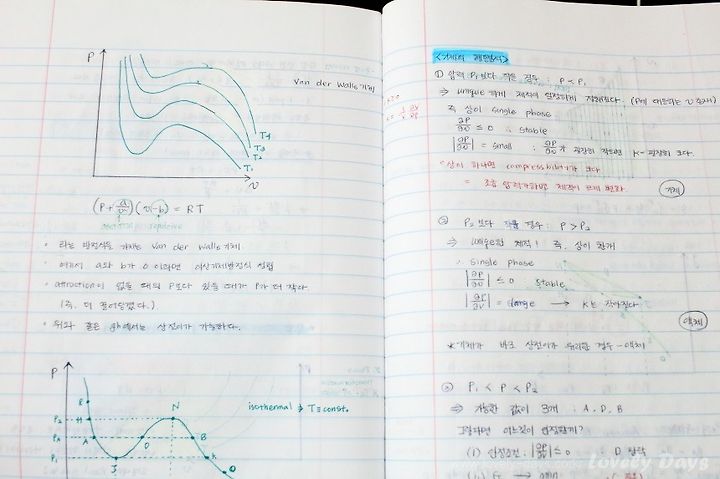 P
Van der Walls 기체
T4
T3
T2
T1
v
(P+a/v²)(v-b) = RT
attractive repulsive
• 라는 방정식을 가지는 Van der Walls 기체
• 여기서 a와 b가 0 이라면 이상기체방정식 성립
• attraction이 없을 때의 P보다 있을 때가 P가 더 작다.
(즉, 더 끌어당겼다.)
• 위와 같은 에서는 상전이가 가능하다.
P
isothermal ⇒ T=const.
R
N
P2
M
PA
A
D
B
P1
J
K
O
<기체의 >
① 압력 P1보다 작은 경우 : P < P1
⇒ unique 하게 체적이 일정하게 (P에 대응하는 v 존재)
즉 상이 single phase
∂P/∂v ≤ 0 : stable
|∂P/∂v| = small : ∂P/∂v 가 굉장히 작으면 K= 굉장히 크다.
상이 하나면 compressibility가 크다
= 조금 압력가하면 체적이 크게 변화
기체
② P2보다 큰 경우 : P > P2
⇒ unique한 체적! 즉, 상이 한개
: single phase
|∂P/∂v| ≤ 0 stable
|∂P/∂v| = large → K는 작아진다.
액체
* 기체가 바로 상전이가 경우 - 액체
③ P1 < P < P2
⇒ 가능한 값이 3개 : A, D, B
그렇다면 어느것이 안정할까?
(i) 안정조건 : |∂P/∂v| ≤ 0 : D 탈락
Lovely Days